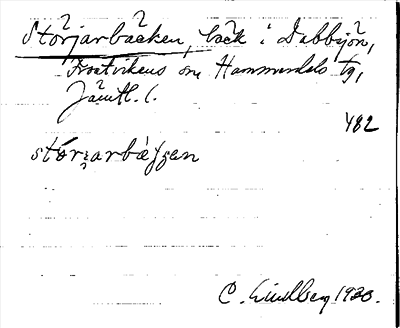 Störjarbäcken, bäck i Dabbsjön,
Frostvikens sn Hammerdals tg,
Jämtl. l.
482
C. Lindberg 1930.